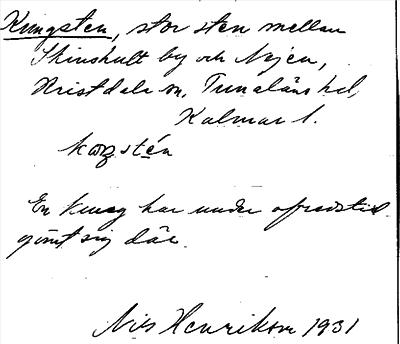 Kungsten, stor sten mellan
Skinshult by och Nyen,
Kristdala sn, Tunaläns hd,
Kalmar l.
En kung har under ofredstid
gömt sig där.
Nils Henrikson 1931